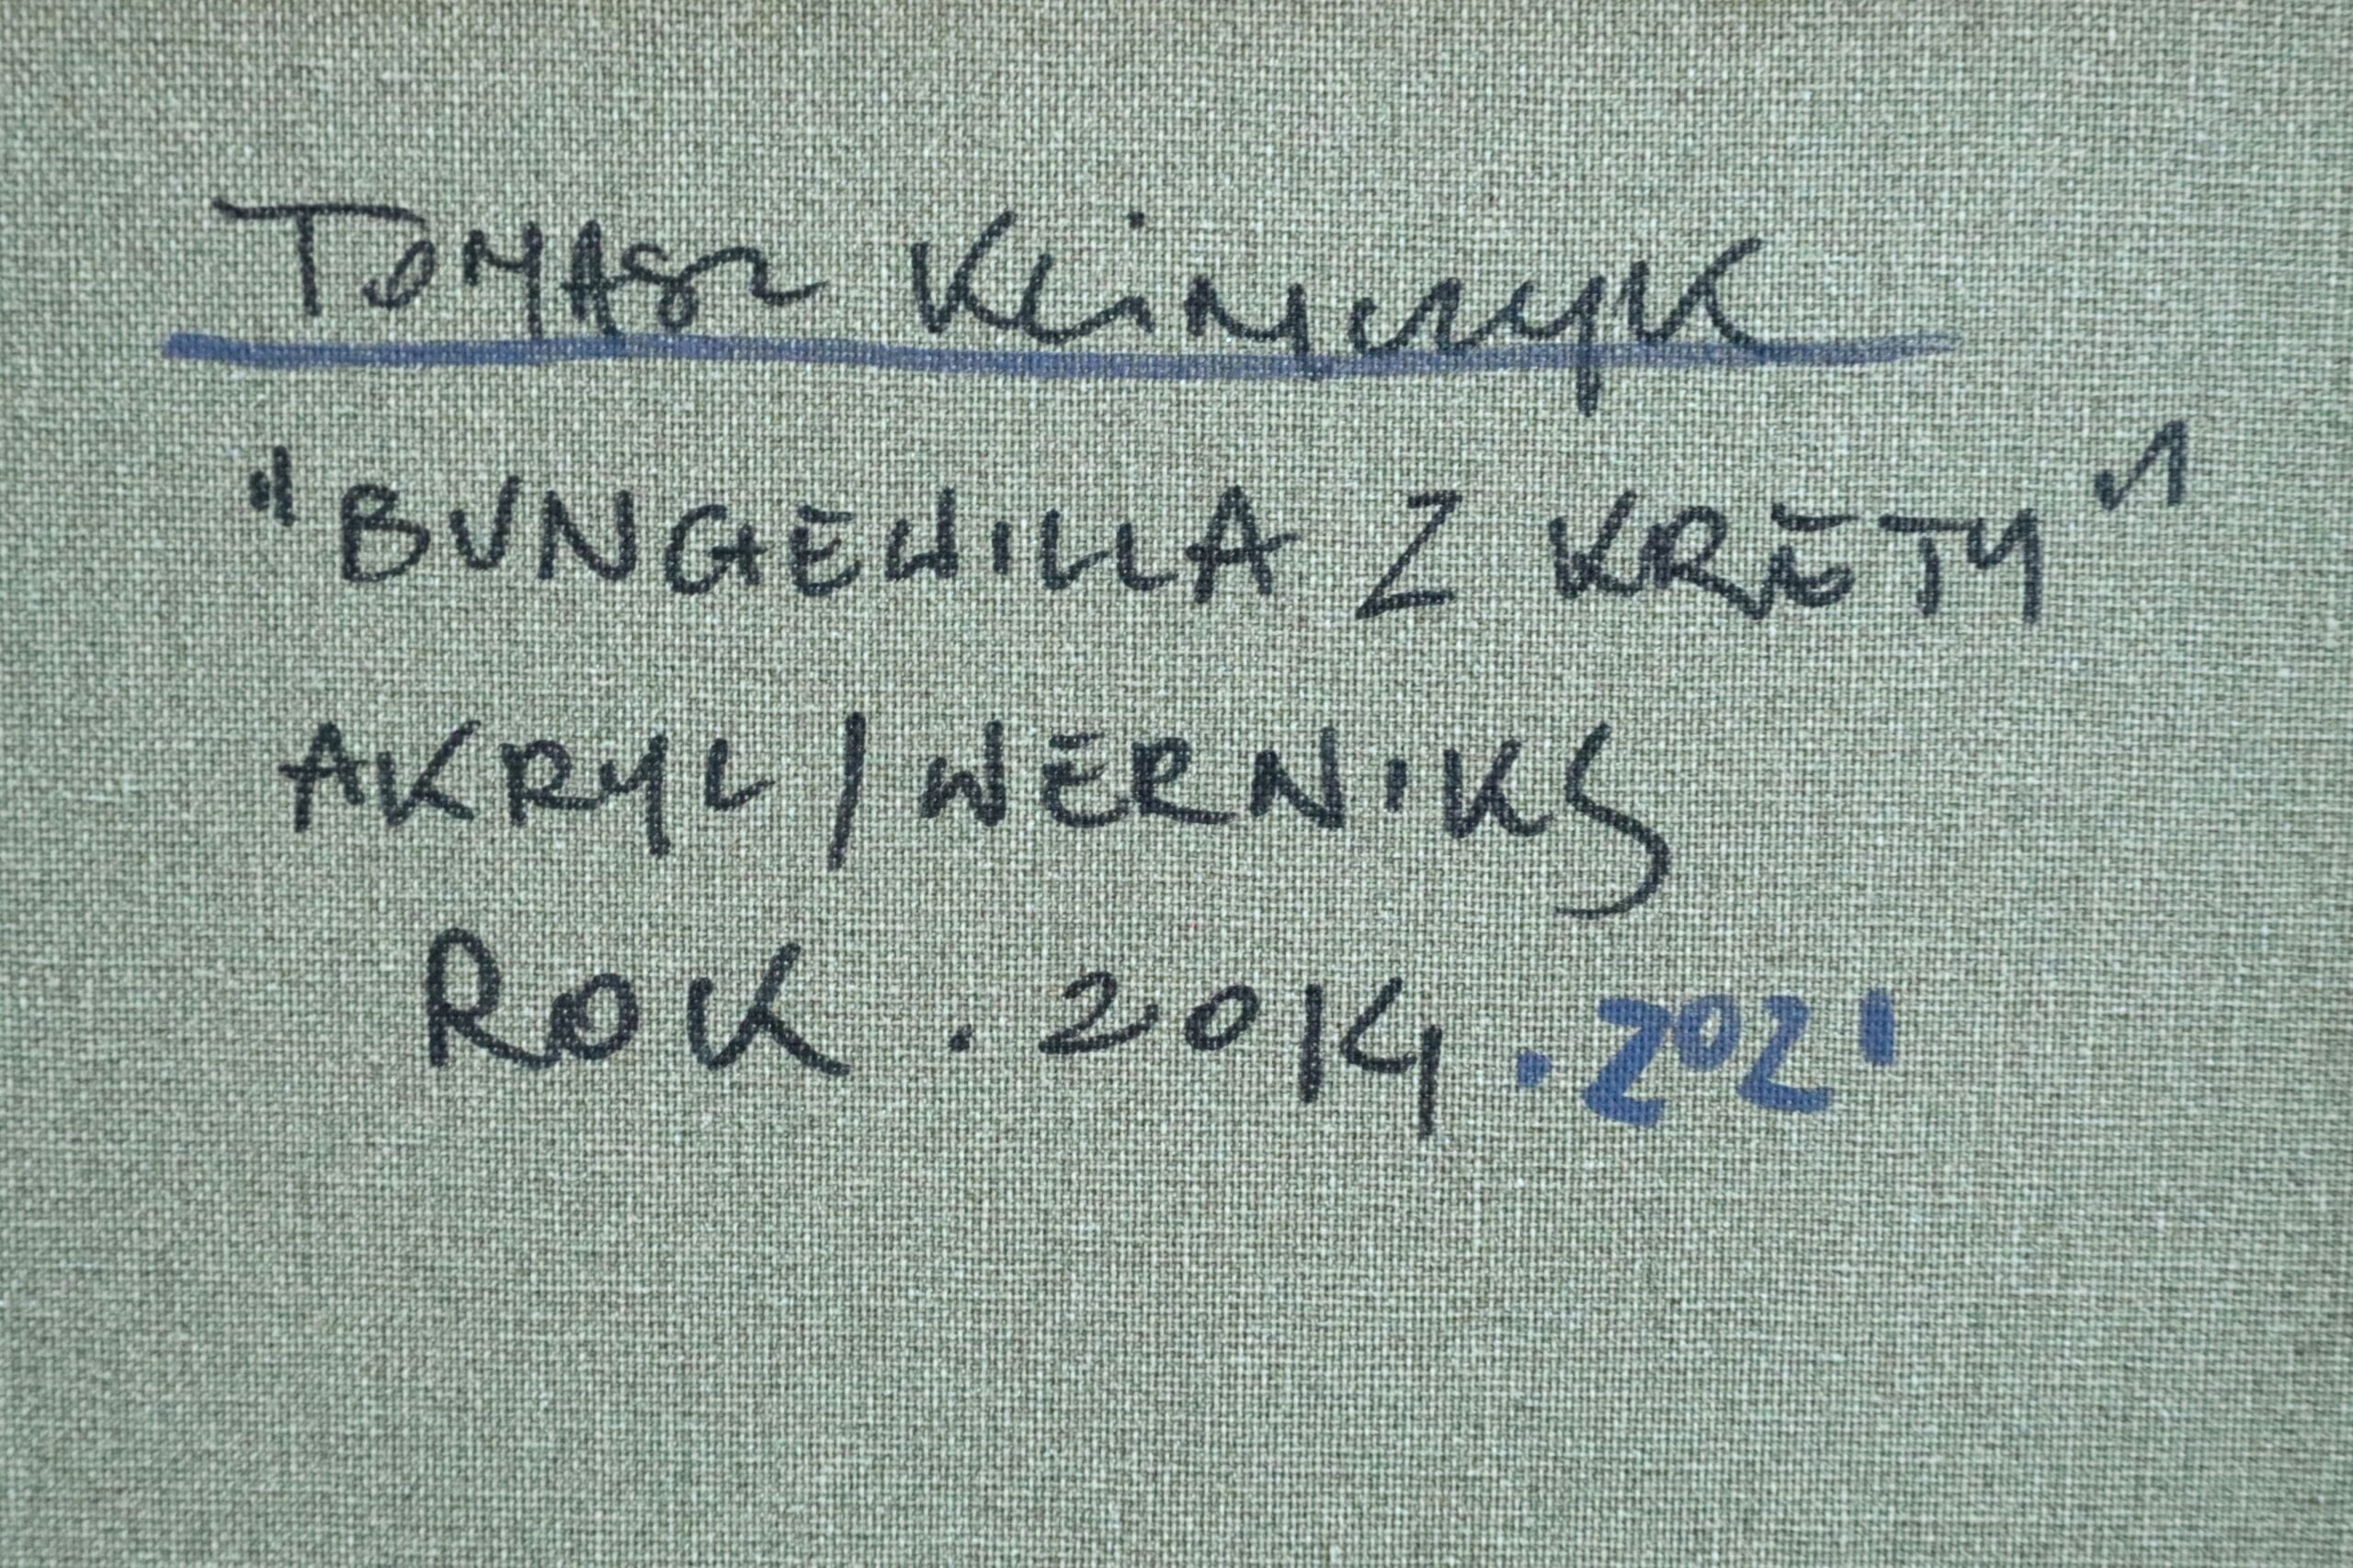 Tomasz Klimczyk
"BUNGEWILLA Z KRETY"
AKRYL/WERNIKS
ROK . 2014 . 2021